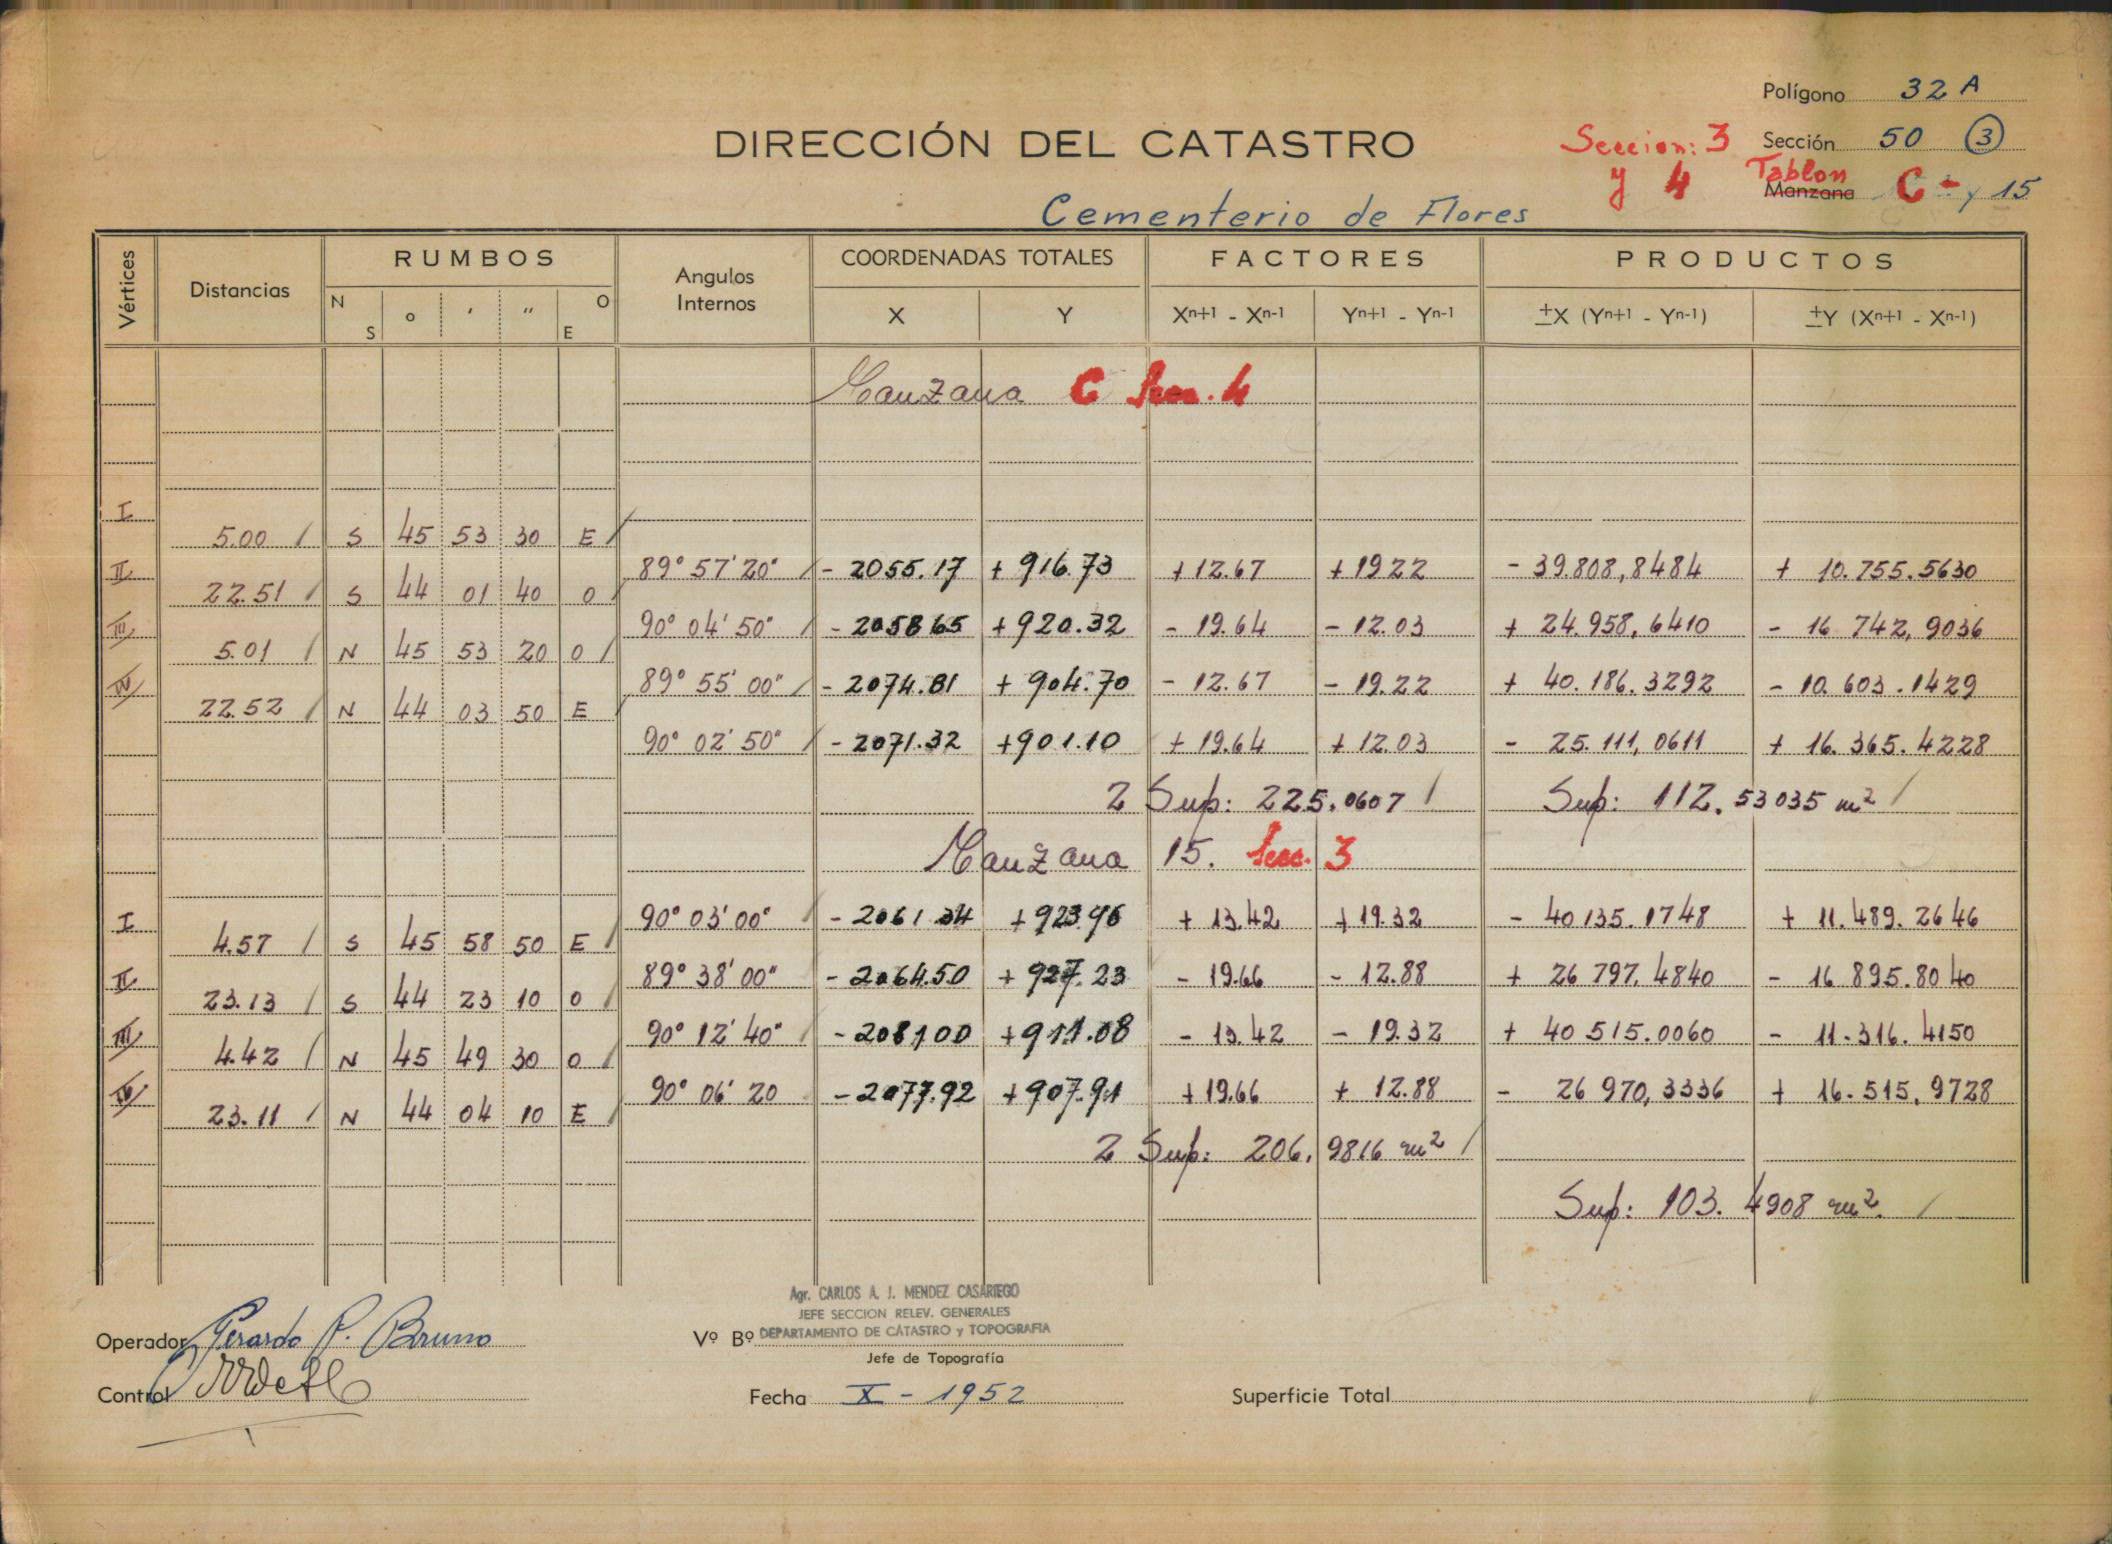 Polígono 32 A
DIRECCIÓN DEL CATASTRO
Seccion: 3 Sección 50 3
y 4 Tablon Manzana C - y 15
Cementerio de Flores
Vértices Distancias RUMBOS Angulos Internos COORDENADAS TOTALES FACTORES PRODUCTOS
N S ° ' " O E X Y Xn+1 - Xn-1 Yn+1 - Yn-1 ±X (Yn+1 - Yn-1) ±Y (Xn+1 - Xn-1)
Manzana C Secc. 4
I
5.00 / S 45 53 30 E /
II 89° 57' 20" / - 2055.17 + 916.73 + 12.67 + 19 22 - 39.808,8484 + 10.755.5630
22.51 / S 44 01 40 O /
III 90° 04' 50" / - 2058 65 + 920.32 - 19.64 - 12.03 + 24.958,6410 - 16 742,9036
5.01 / N 45 53 20 O /
IV 89° 55' 00" / - 2074.81 + 904.70 - 12.67 - 19.22 + 40.186.3292 - 10.603.1429
22.52 / N 44 03 50 E /
90° 02' 50" / - 2071.32 + 901.10 + 19.64 + 12.03 - 25.111,0611 + 16.365.4228
2 Sup: 225.0607 / Sup: 112.53035 m2 /
Manzana 15. Secc. 3
I 90° 03' 00" / - 2061 34 + 923.96 + 13.42 + 19.32 - 40 135.1748 + 11.489.2646
4.57 / S 45 58 50 E /
II 89° 38' 00" - 2064.50 + 927.23 - 19.66 - 12.88 + 26 797.4840 - 16 895.8040
23.13 / S 44 23 10 O /
III 90° 12' 40" / - 2081 00 + 911.08 - 13.42 - 19.32 + 40 515.0060 - 11.316.4150
4.42 / N 45 49 30 O /
IV 90° 06' 20 - 2077.92 + 907.91 + 19.66 + 12.88 - 26 970,3336 + 16.515,9728
23.11 / N 44 04 10 E /
2 Sup: 206.9816 m2 /
Sup: 103.4908 m2. /
Agr. CARLOS A. J. MENDEZ CASARIEGO
JEFE SECCION RELEV. GENERALES
Operador Gerardo P. Bruno Vº Bº DEPARTAMENTO DE CATASTRO y TOPOGRAFIA
Jefe de Topografía
Control Fecha X - 1952 Superficie Total